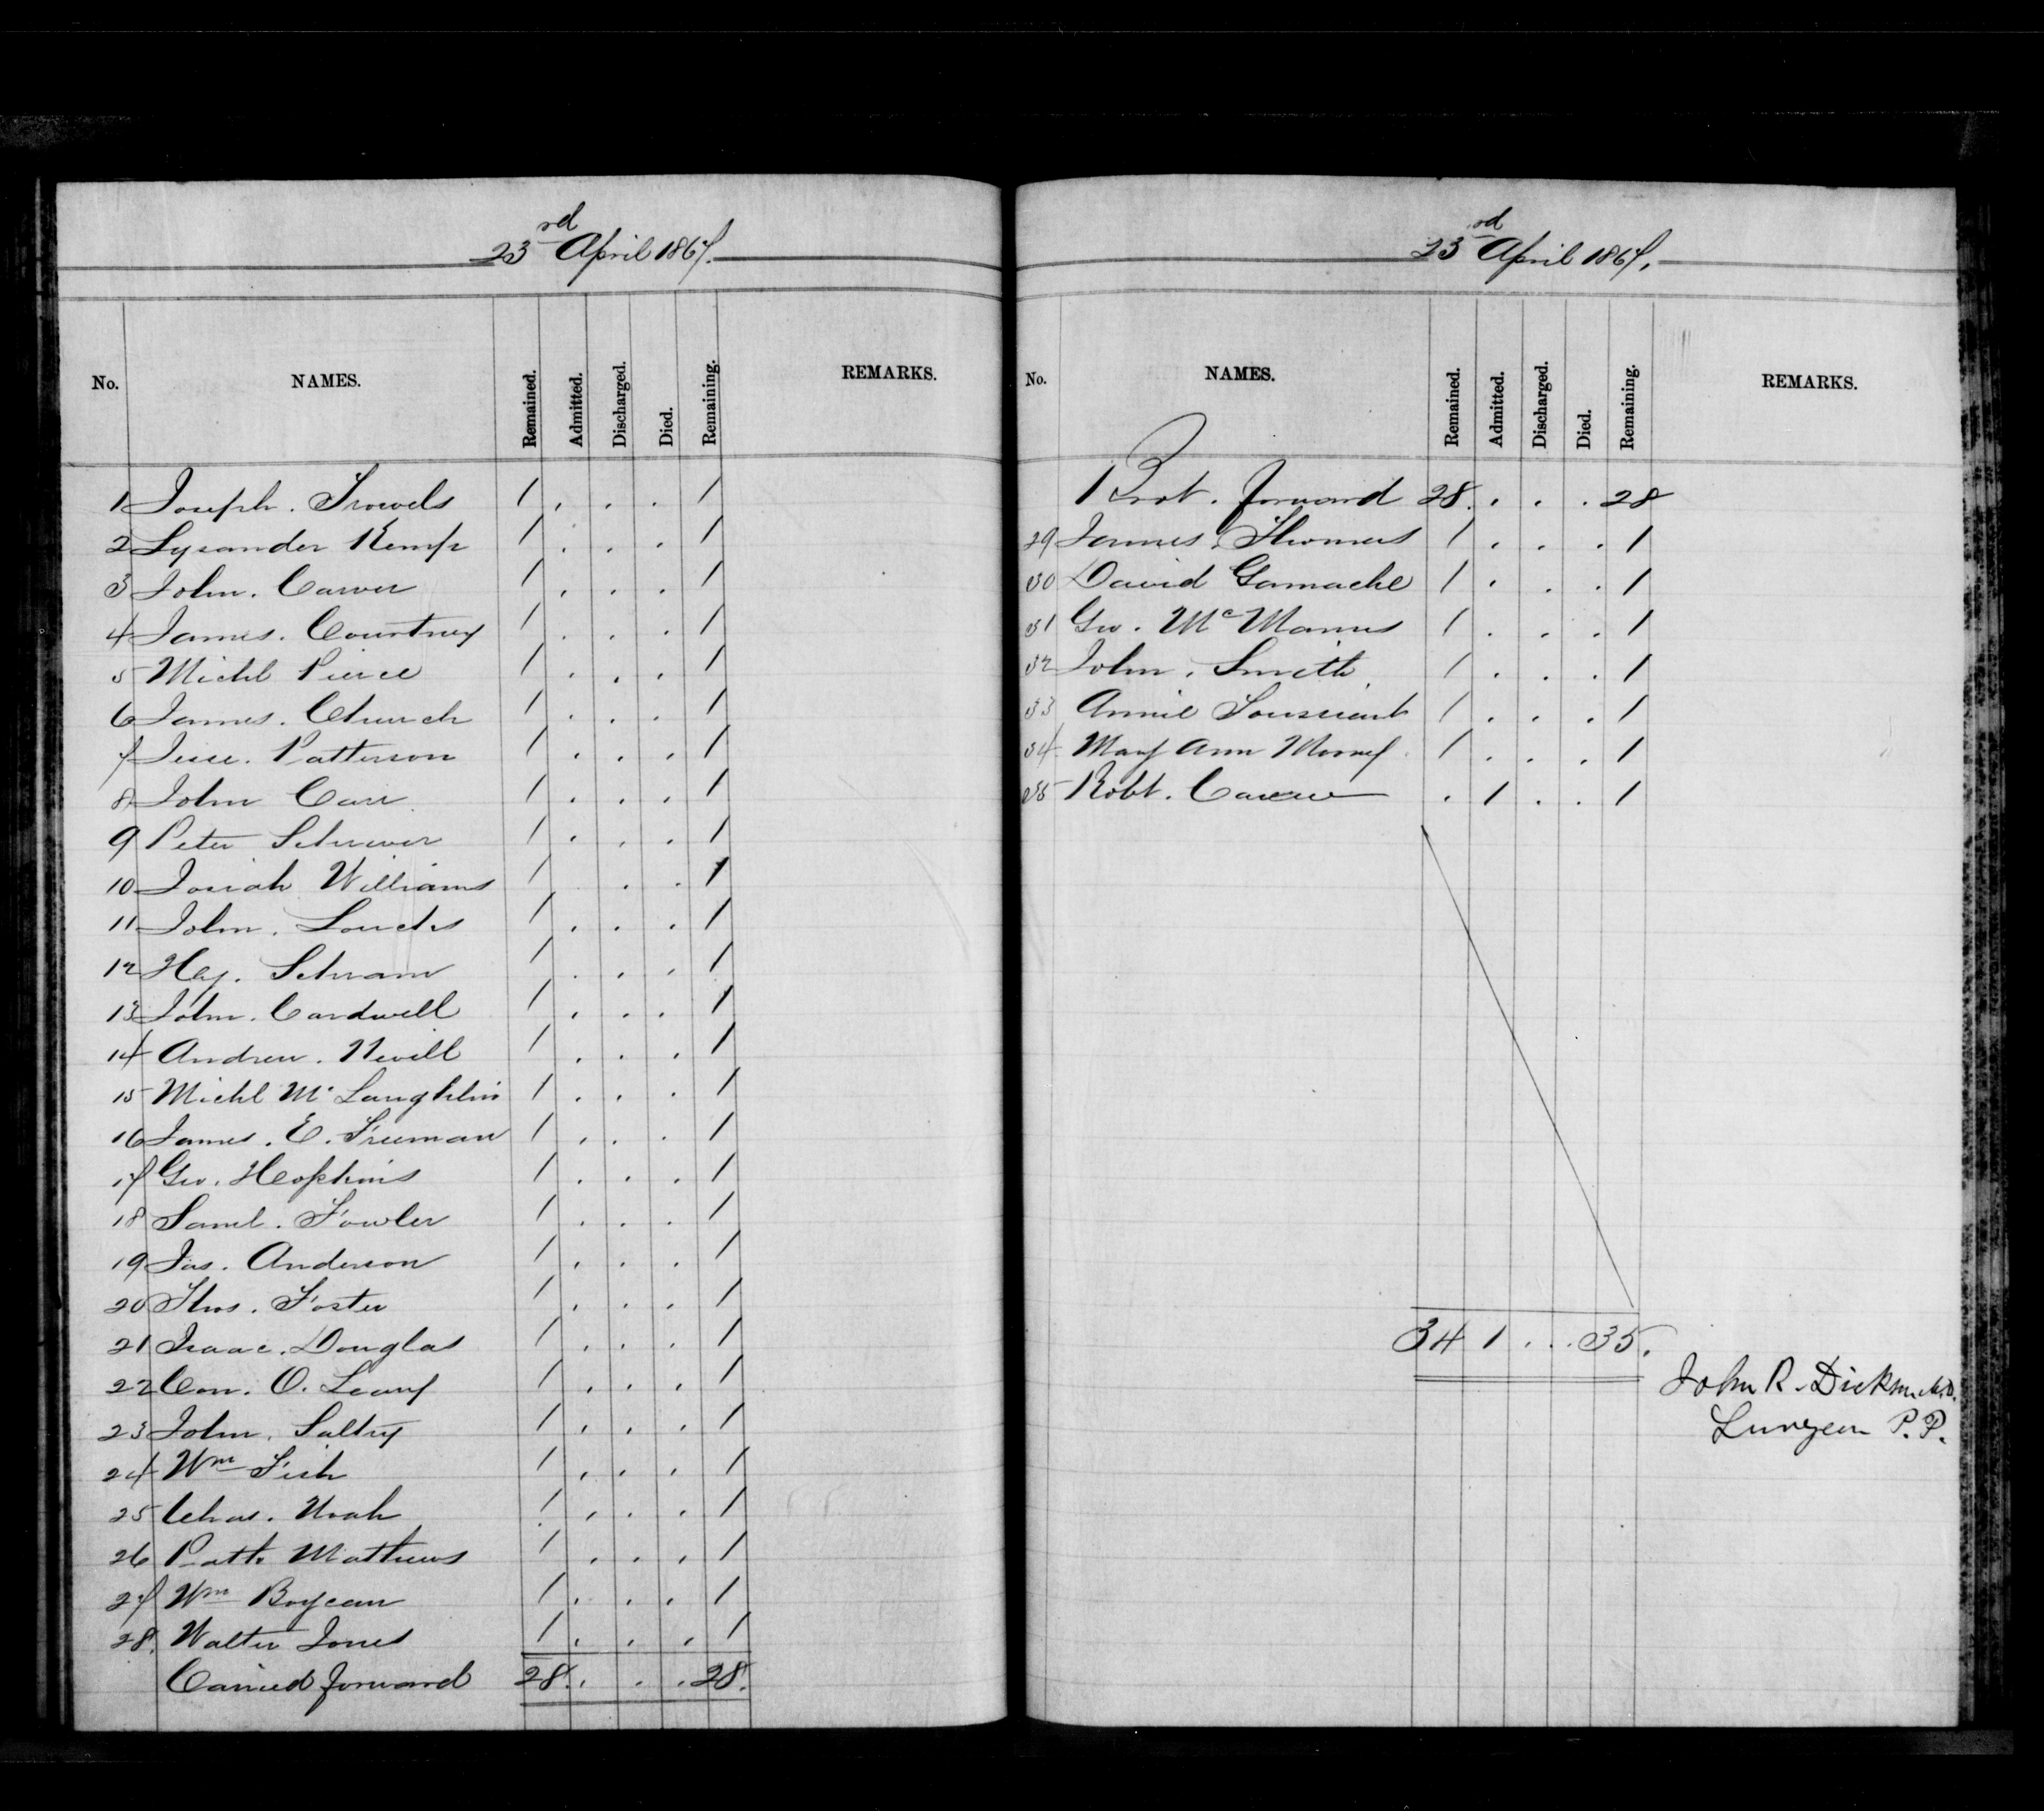 23rd April 1867.
No. NAMES. Remained. Admitted. Discharged. Died. Remaining. REMARKS.
1 Joseph. Trowels 1 . . . 1
2 Lysander Kemp 1 . . . 1
3 John. Carver 1 . . . 1
4 James. Courtney 1 . . . 1
5 Michl Pierce 1 . . . 1
6 James. Church 1 . . . 1
7 Jesse. Patterson 1 . . . 1
8 John Carr 1 . . . 1
9 Peter Schriver 1 . . . 1
10 Josiah Williams 1 . . 1
11 John. Loucks 1 . . . 1
12 Hy. Schram 1 . . . 1
13 John. Cardwell 1 . . . 1
14 Andrew. Nevill 1 . . . 1
15 Michl Mc Laughlin 1 . . . 1
16 James. E. Freeman 1 . . . 1
17 Geo. Hopkins 1 . . . 1
18 Saml. Fowler 1 . . . 1
19 Jas. Anderson 1 . . . 1
20 Thos. Foster 1 . . . 1
21 Isaac. Douglas 1 . . . 1
22 Con. O. Leary 1 . . . 1
23 John. Saltry 1 . . . 1
24 Wm Fish 1 . . . 1
25 Chas. Noah 1 . . . 1
26 Patk Mathews 1 . . . 1
27 Wm Boyean 1 . . . 1
28. Walter Jones 1 . . . 1
Carried forward 28. . . . 28.
23rd April 1867.
No. NAMES. Remained. Admitted. Discharged. Died. Remaining. REMARKS.
Brot. forward 28. . . . 28
29 James. Thomas 1 . . . 1
30 David Gamache 1 . . . 1
31 Geo. Mc Manus 1 . . . 1
32 John. Smith 1 . . . 1
33 Annie Toussiant 1 . . . 1
34 Mary Ann 1 . . . 1
35 Robt. . 1 . . 1
34 1 . . . 35.
John R. Dickson M.D.
Surgeon P. P.